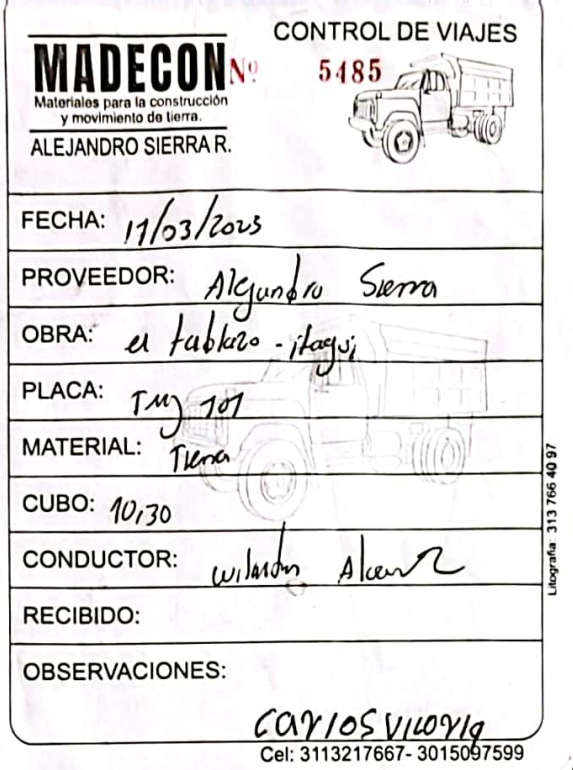 CONTROL DE VIAJES
MADECON
Nº 5485
Materiales para la construcción
y movimiento de tierra.
ALEJANDRO SIERRA R.
FECHA: 17/03/2023
PROVEEDOR: Alejandro Sierra
OBRA: el tablazo - itagui
PLACA: TMJ 701
MATERIAL: Tierra
CUBO: 10,30
CONDUCTOR:
RECIBIDO:
OBSERVACIONES:
Carlos Viloria
Cel: 3113217667- 3015097599
Litografía: 313 766 40 97